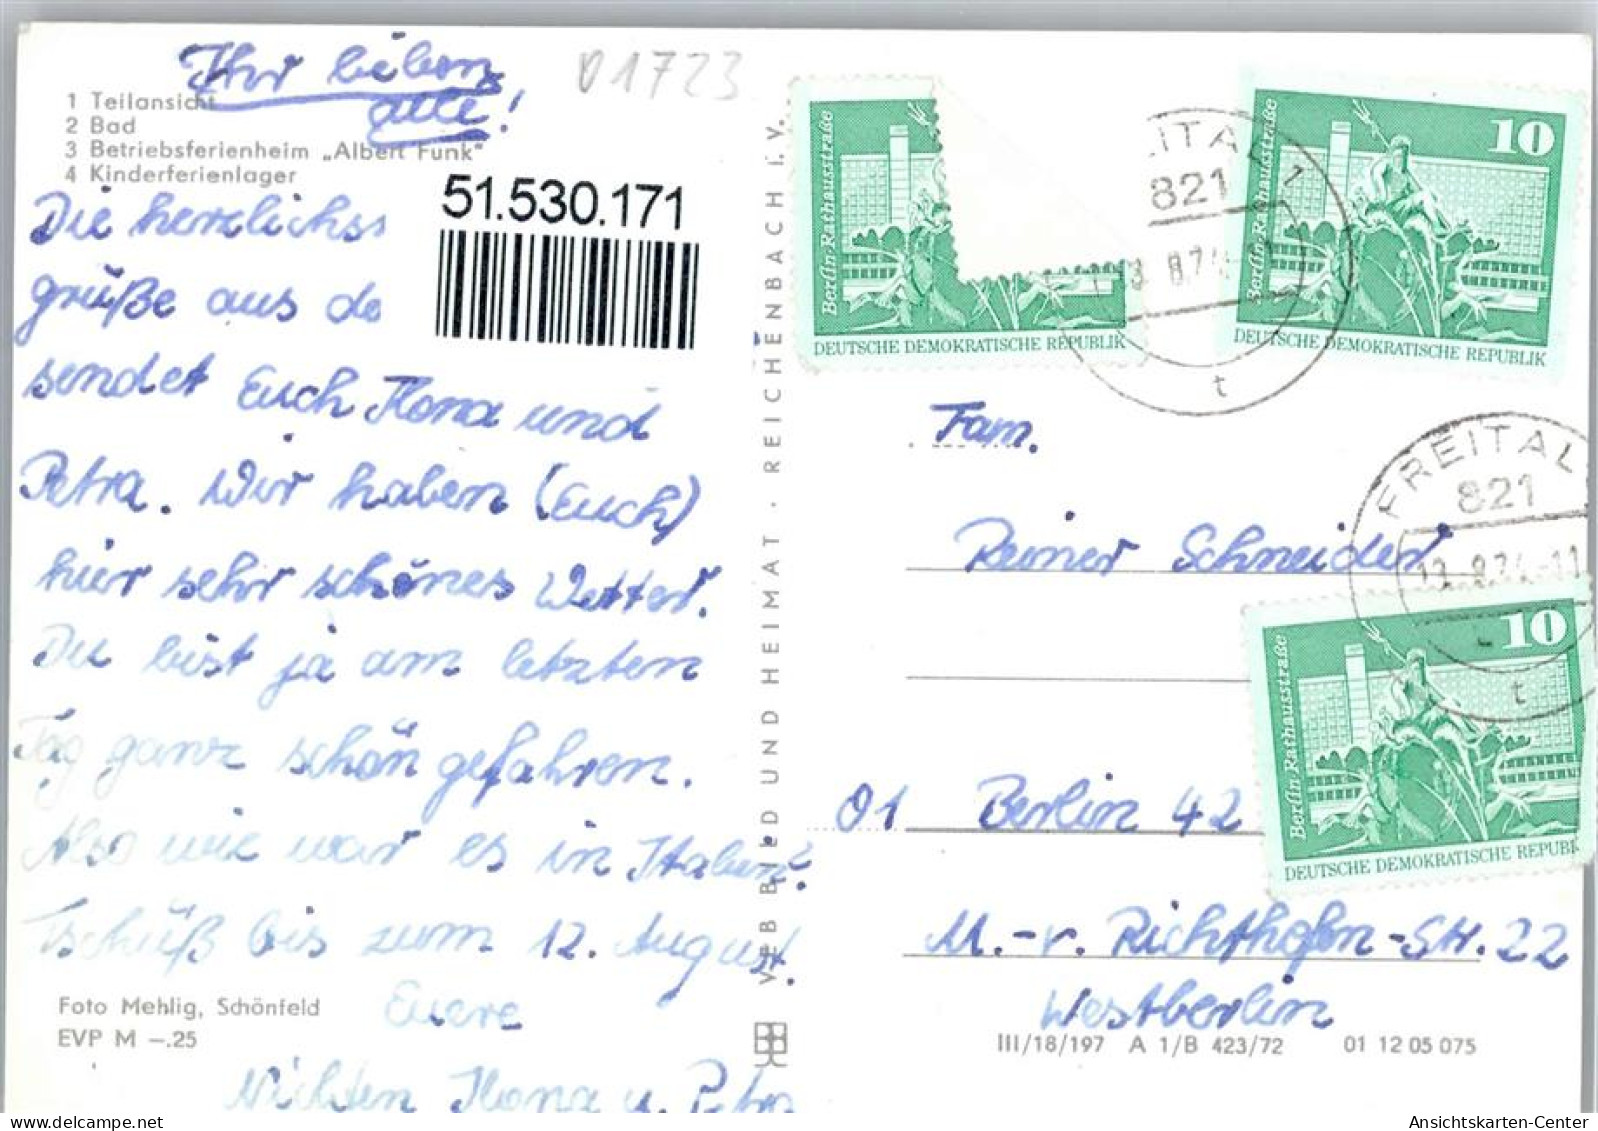 Ihr lieben
alle!
01723
1 Teilansicht
2 Bad
3 Betriebsferienheim „Albert Funk"
4 Kinderferienlager
51.530.171
Die herzlichs
grüße aus de
sendet Euch Ilona und
Petra. Wir haben (Euch)
hier sehr schönes Wetter.
Du bist ja am letzten
Tag ganz schön gefahren.
Also wie war es in Italien?
Tschüß bis zum 12. August.
Euere
Nichten Ilona u. Petra
Foto Mehlig, Schönfeld
EVP M –.25
VEB BILD UND HEIMAT · REICHENBACH I. V.
Berlin-Rathausstraße
DEUTSCHE DEMOKRATISCHE REPUBLIK
ITAL 1
821
t
10
Berlin-Rathausstraße
DEUTSCHE DEMOKRATISCHE REPUBLIK
FREITAL
821
t
10
Berlin-Rathausstraße
DEUTSCHE DEMOKRATISCHE REPUBLIK
Fam.
Reiner Schneider
01 Berlin 42
M.-v. Richthofen-Str. 22
Westberlin
III/18/197 A 1/B 423/72 01 12 05 075
Ansichtskarten-Center